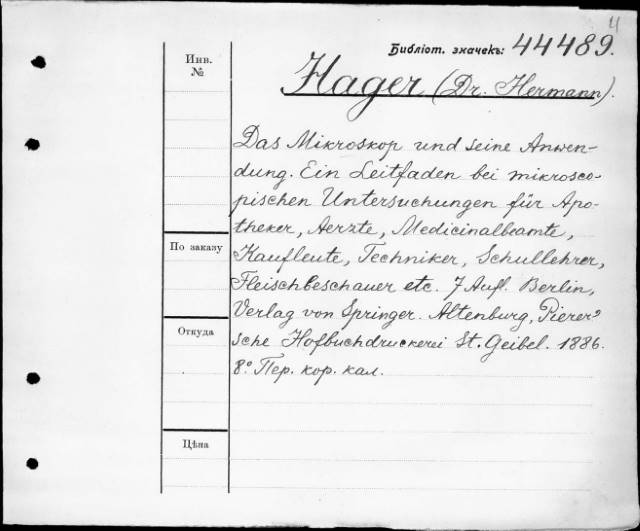 4
Библіот. значекъ: 44489.
Инв.
№
Hager (Dr. Hermann).
Das Mikroskop und seine Anwen-
dung. Ein Leitfaden bei mikrosco-
pischen Untersuchungen für Apo-
theker, Aerzte, Medicinalbeamte,
По заказу
Kaufleute, Techniker, Schullehrer,
Fleischbeschauer etc. 7 Aufl. Berlin,
Verlag von Springer. Altenburg, Pierer'
Откуда
sche Hofbuchdruckerei St. Geibel. 1886.
8º. Пер. кор. кал.
Цѣна